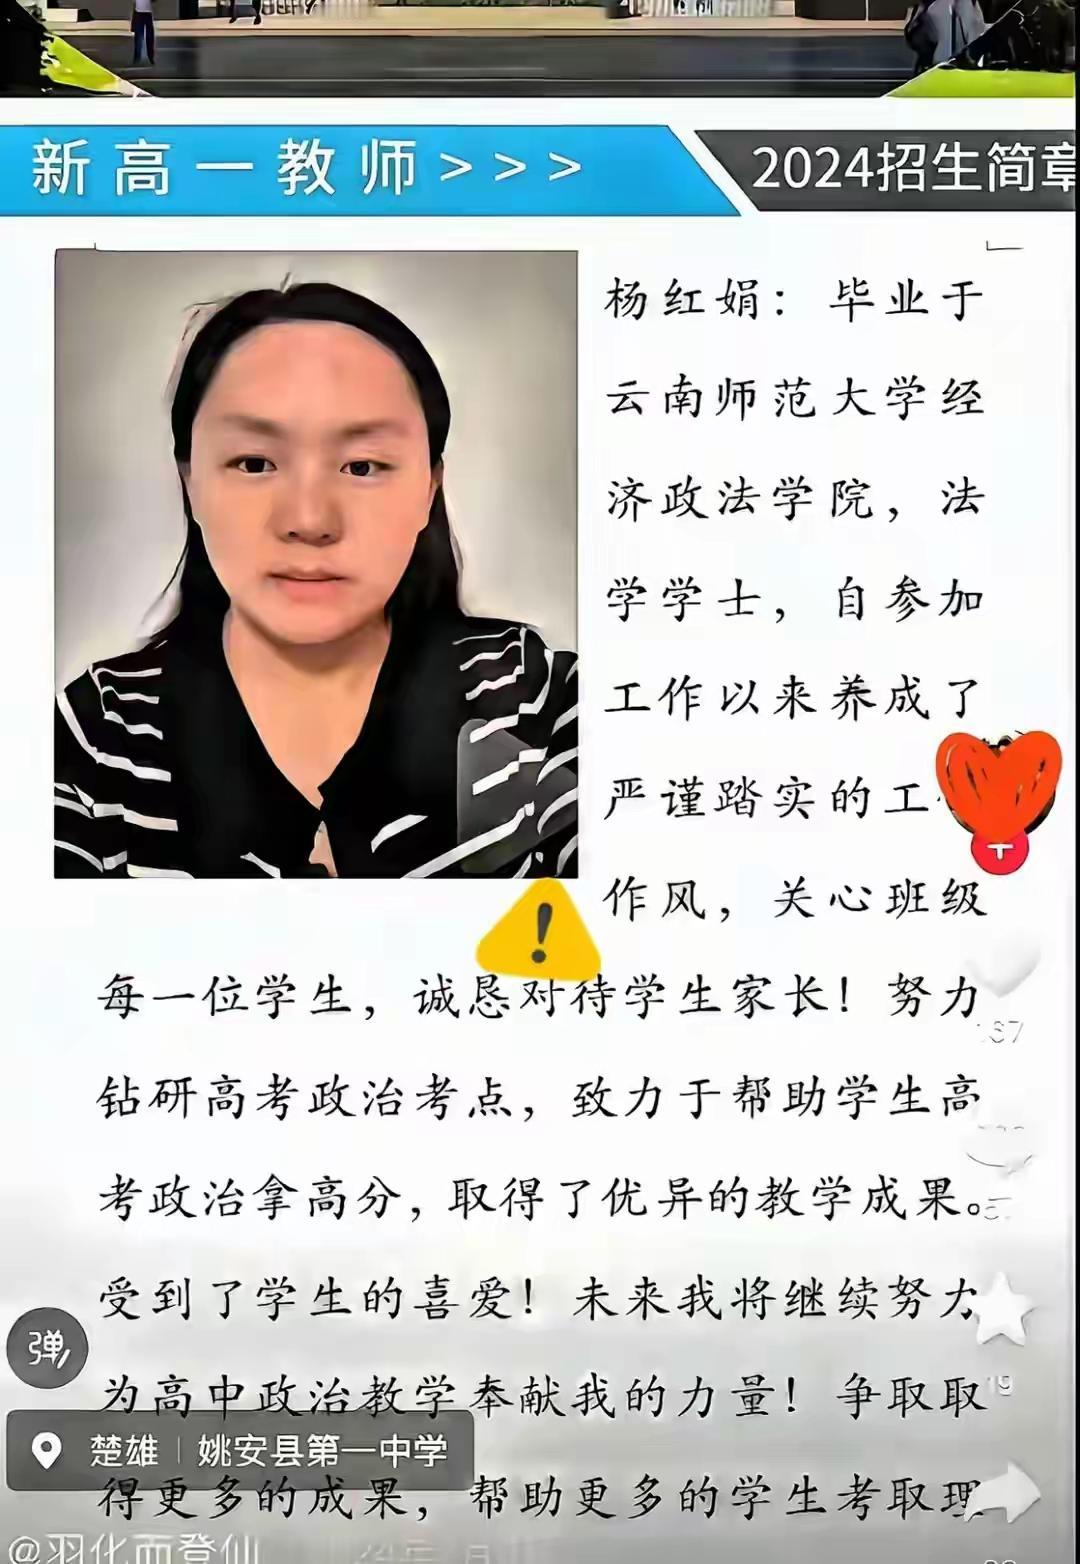 新高一教师>>>
2024招生简章
杨红娟：毕业于
云南师范大学经
济政法学院，法
学学士，自参加
工作以来养成了
严谨踏实的工
作风，关心班级
每一位学生，诚恳对待学生家长！努力
钻研高考政治考点，致力于帮助学生高
考政治拿高分，取得了优异的教学成果。
受到了学生的喜爱！未来我将继续努力
弹
为高中政治教学奉献我的力量！争取取
19
楚雄｜姚安县第一中学
得更多的成果，帮助更多的学生考取理
@羽化而登仙